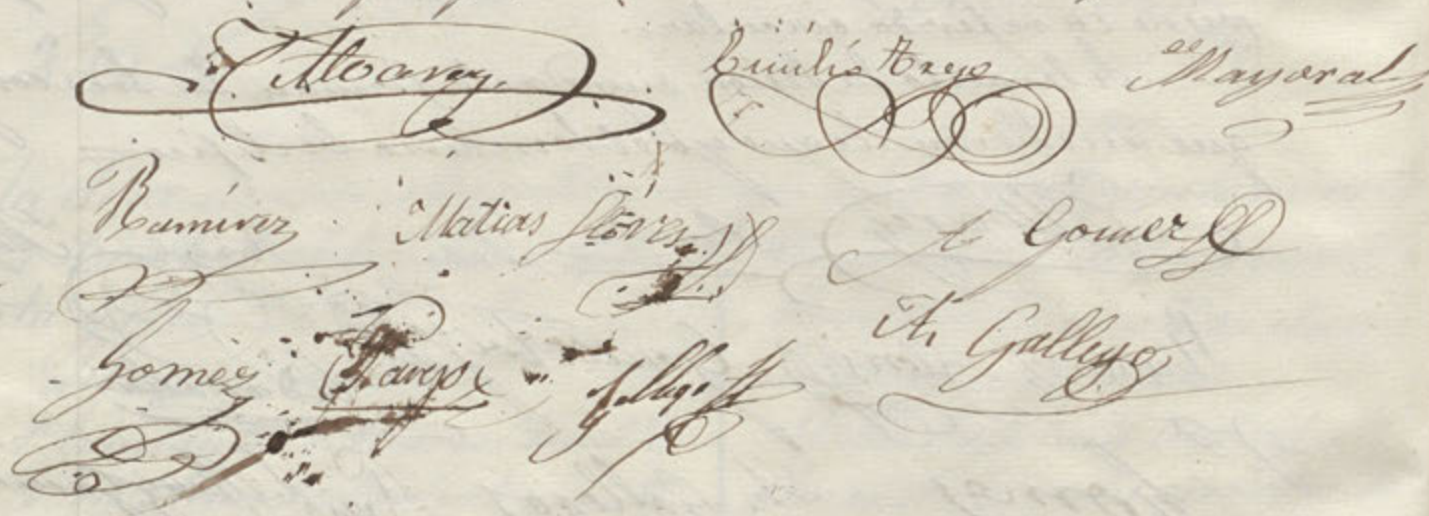 Alvarez, Emilio Trejo Mayoral
Ramírez Matias Flóres A Gomez
Gomez Gallego